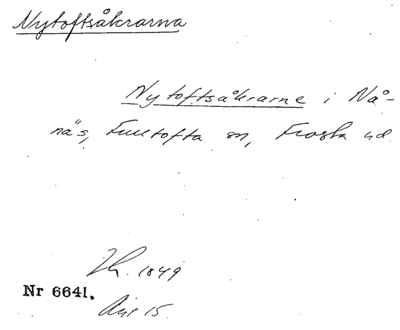 Nytoftsåkrarna
Nytoftsåkrarne i Nå-
näs, Fulltofta sn, Frosta hd
Lh. 1849
Nr 6641.
Akt 15.